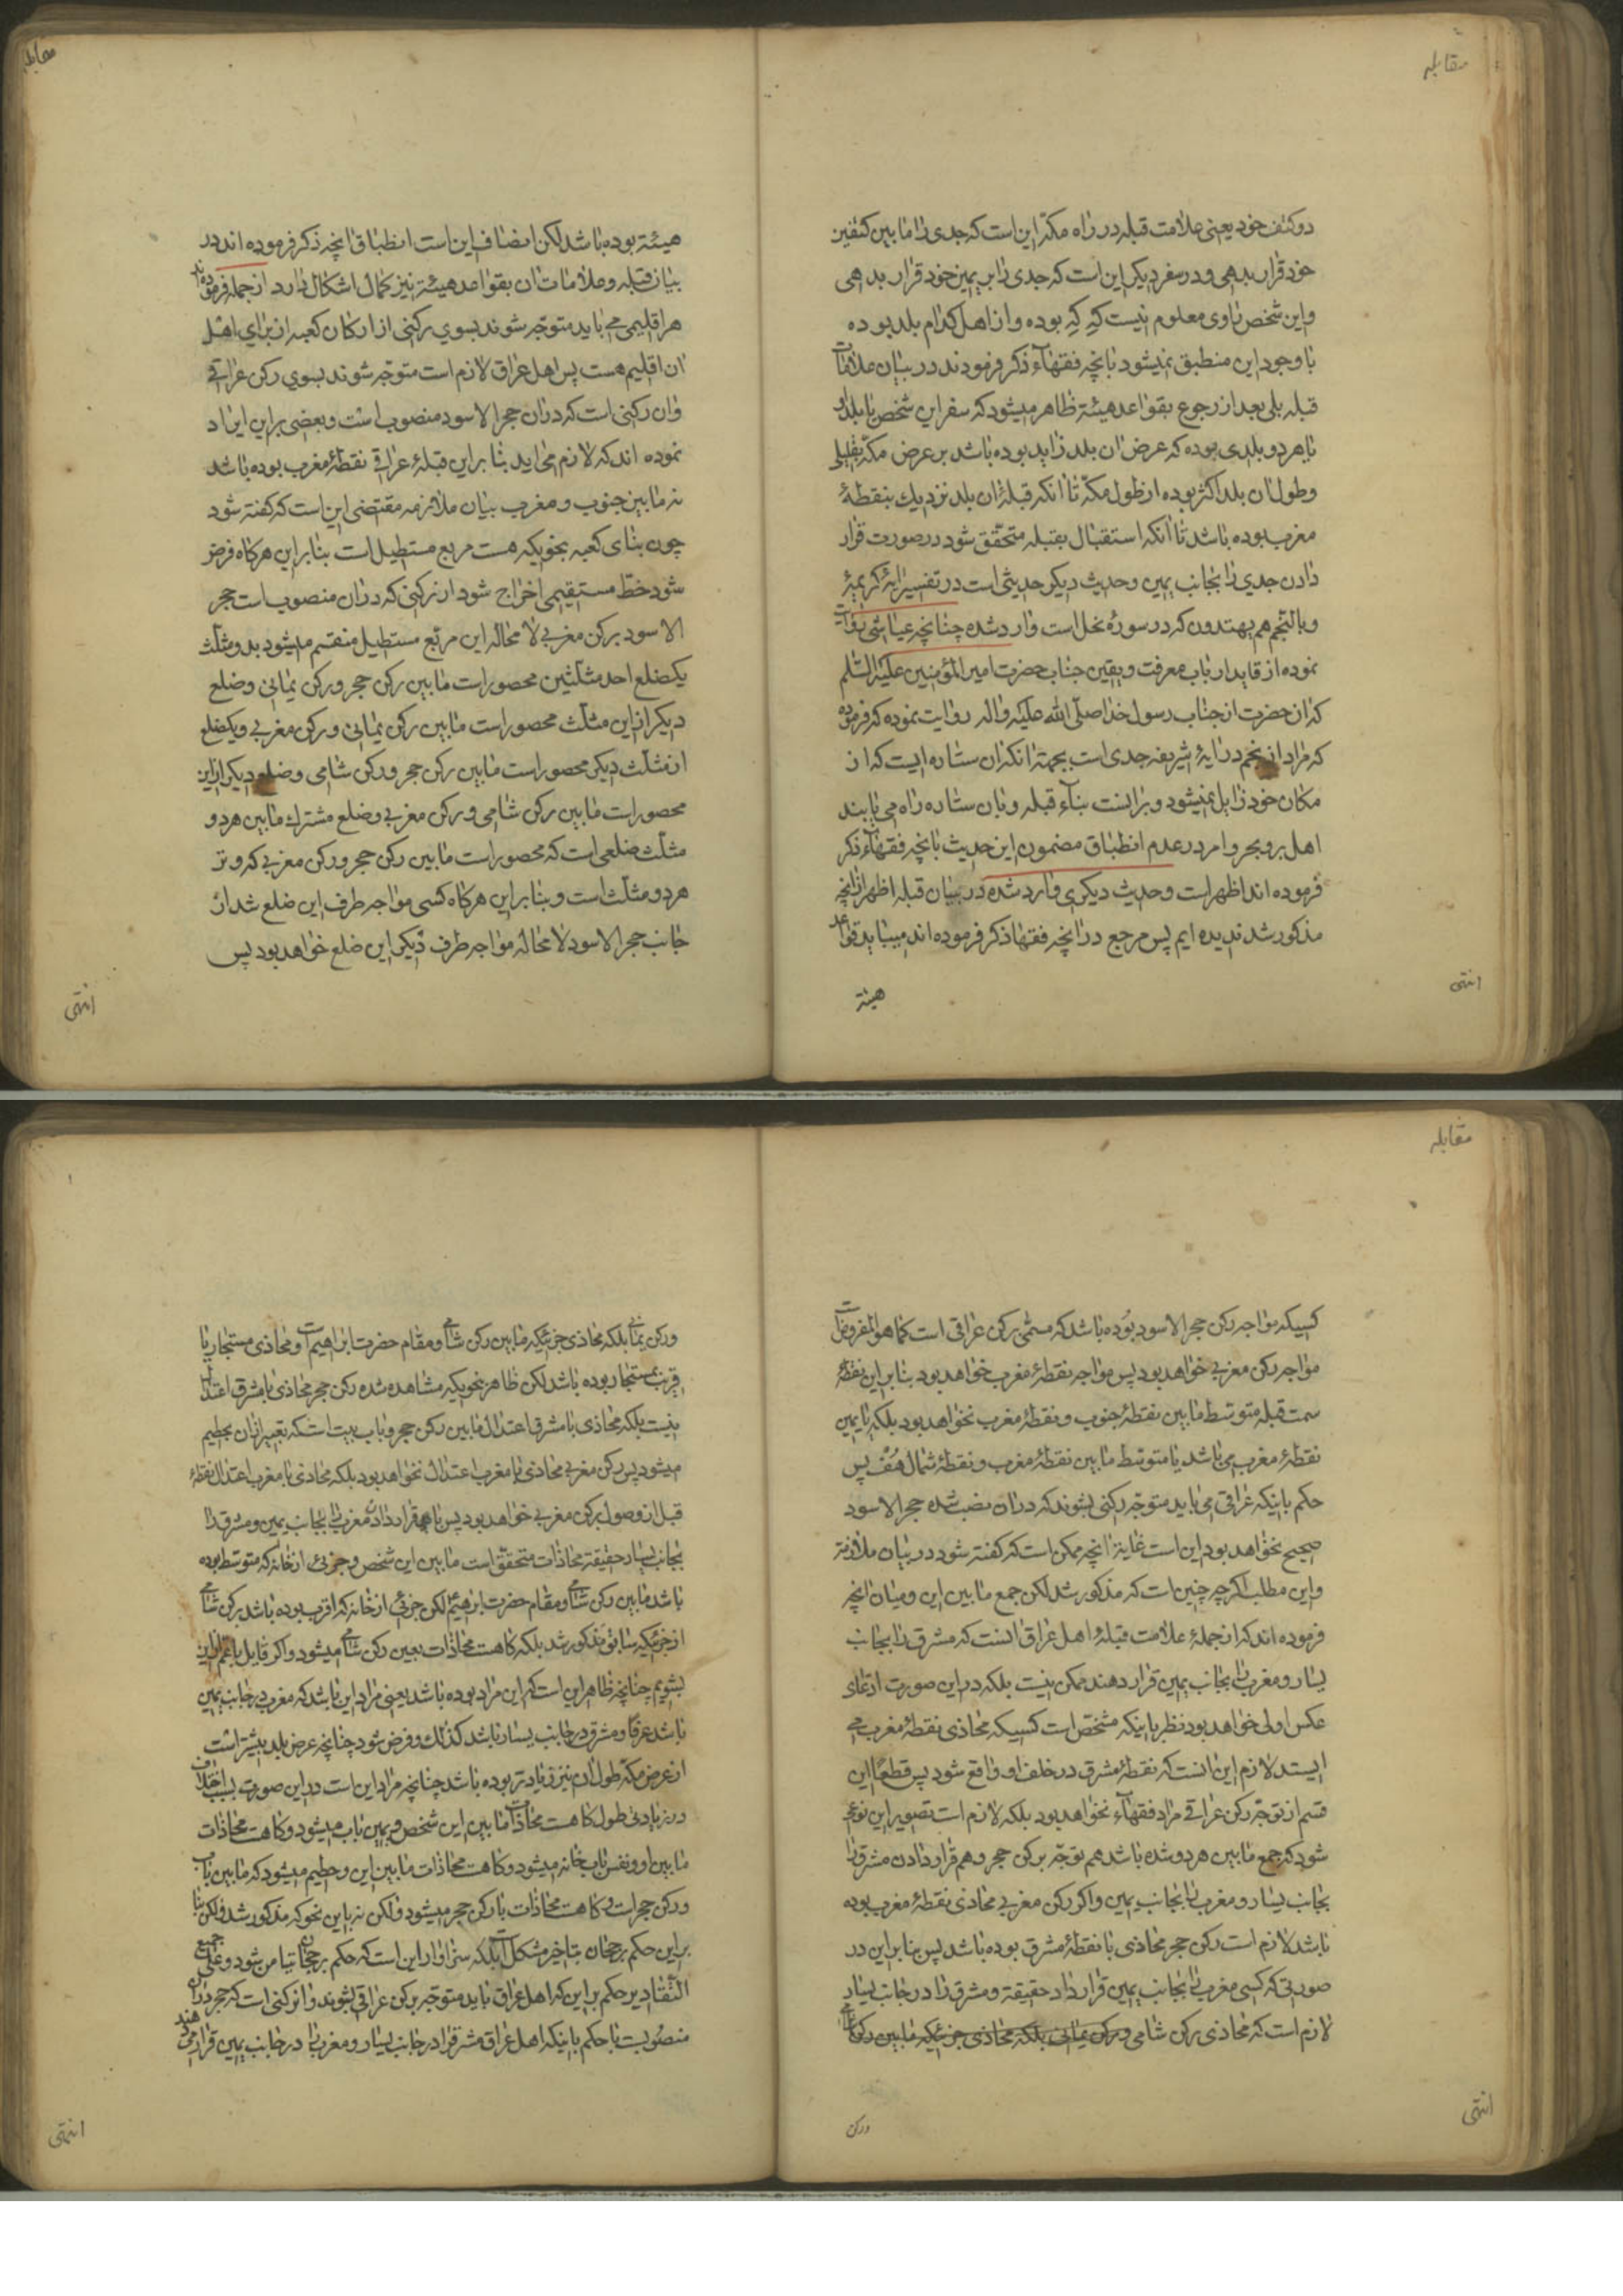 مقابله
دو کتف خود یعنی علامت قبله در راه مکه این است که جدی را ما بین کتفین
خود قرار بدهی و در سفر دیکر این است که جدی را بر یمین خود قرار بدهی
و این شخص راوی معلوم نیست که که بوده و از اهل کدام بلد بوده
با وجود این منطبق نمیشود بانچه فقهاء ذکر فرمودند در بیان علامات
قبله بلی بعد از رجوع بقواعد هیئة ظاهر میشود که سفر این شخص یا بلد او
یا هر دو بلدی بوده که عرض ان بلد زاید بوده باشد بر عرض مکه بقلیلی
و طول ان بلد اکثر بوده از طول مکه تا انکه قبلهٔ ان بلد نزدیك بنقطهٔ
مغرب بوده باشد تا انکه استقبال بقبله متحقق شود در صورت قرار
دادن جدی را بجانب یمین و حدیث دیکر حدیثی است در تفسیر ایهٔ کریمهٔ
و بالنجم هم یهتدون که در سورهٔ نحل است وارد شده چنانچه عیاشی روایت
نموده از قاید ارباب معرفت و یقین جناب حضرت امیر المؤمنین علیه السلم
که ان حضرت از جناب رسول خدا صلی الله علیه واله روایت نموده که فرموده
که مراد از نجم در ایهٔ شریفه جدی است بجهة انکه ان ستاره ایست که از
مکان خود زایل نمیشود و بر انست بناء قبله و بان ستاره راه می یابند
اهل بر و بحر و امر در عدم انطباق مضمون این حدیث بانچه فقهاء ذکر
فرموده اند اظهر است و حدیث دیکری وارد شده در بیان قبله اظهر از انچه
مذکور شد ندیده ایم پس مرجع در انچه فقها ذکر فرموده اند میباید قواعد
هیئة
انتهی
هیئة بوده باشد لکن انصاف این است انطباق انچه ذکر فرموده اند در
بیان قبله و علامات ان بقواعد هیئة نیز کمال اشکال دارد از جمله فرموده اند
هر اقلیمی می باید متوجه شوند بسوی رکنی از ارکان کعبه از برای اهل
ان اقلیم هست پس اهل عراق لازم است متوجه شوند بسوی رکن عراقی
و ان رکنی است که در ان حجر الاسود منصوب است و بعضی بر این ایراد
نموده اند که لازم می اید بنا بر این قبلهٔ عراقی نقطهٔ مغرب بوده باشد
نه ما بین جنوب و مغرب بیان ملازمه مقتضی این است که کفته شود
چون بنای کعبه بنحویکه هست مربع مستطیل است بنابر این هرکاه فرض
شود خط مستقیمی اخراج شود از رکنی که در ان منصوب است حجر
الاسود برکن مغربی لا محاله این مربع مستطیل منقسم میشود بدو مثلث
یکضلع احد مثلثین محصور است ما بین رکن حجر و رکن یمانی و ضلع
دیکر از این مثلث محصور است ما بین رکن یمانی و رکن مغربی و یکضلع
از مثلث دیکر محصور است ما بین رکن حجر و رکن شامی و ضلع دیکر از این
محصور است ما بین رکن شامی و رکن مغربی و ضلع مشترك ما بین هر دو
مثلث ضلعی است که محصور است ما بین رکن حجر و رکن مغربی که وتر
هر دو مثلث است و بنابر این هرکاه کسی مواجه طرف این ضلع شد از
جانب حجر الاسود لا محاله مواجه طرف دیکر این ضلع خواهد بود پس
انتهی
مقابله
کسیکه مواجه رکن حجر الاسود بوده باشد که مسمی برکن عراقی است کما هو المفروض
مواجه رکن مغربی خواهد بود پس مواجه نقطهٔ مغرب خواهد بود بنابر این نقطهٔ
سمت قبله متوسط ما بین نقطهٔ جنوب و نقطهٔ مغرب نخواهد بود بلکه یا بعین
نقطهٔ مغرب می باشد یا متوسط ما بین نقطهٔ مغرب و نقطهٔ شمال هف پس
حکم باینکه عراقی می باید متوجه رکنی بشوند که در ان نصب شده حجر الاسود
صحیح نخواهد بود این است غایة انچه ممکن است که کفته شود در بیان ملازمة
و این مطلب اکرچه چنین است که مذکور شد لکن جمع ما بین این و میان انچه
فرموده اند که از جملهٔ علامت قبلهٔ اهل عراق انست که مشرق را بجانب
یسار و مغرب را بجانب یمین قرار دهند ممکن نیست بلکه در این صورت ادعای
عکس اولی خواهد بود نظر باینکه مشخص است کسیکه محاذی نقطهٔ مغرب می
ایستد لازم این انست که نقطهٔ مشرق در خلف او واقع شود پس قطعا این
قسم از توجه رکن عراقی مراد فقهاء نخواهد بود بلکه لازم است تصویر این نوعی
شود که جمع ما بین هر دو شده باشد هم توجه برکن حجر و هم قرار دادن مشرق را
بجانب یسار و مغرب را بجانب یمین و اکر رکن مغربی محاذی نقطهٔ مغرب بوده
باشد لازم است رکن حجر محاذی با نقطهٔ مشرق بوده باشد پس بنابر این در
صورتی که کسی مغرب را بجانب یمین قرار داد حقیقة و مشرق را در جانب یسار
لازم است که محاذی رکن شامی و رکن یمانی بلکه محاذی جزئیکه ما بین رکن
ورکن
انتهی
و رکن یمانی بلکه محاذی جزئیکه ما بین رکن شامی و مقام حضرت ابراهیم و محاذی مستجار یا
قریب بمستجار بوده باشد لکن ظاهر بنحویکه مشاهده شده رکن حجر محاذی با مشرق اعتدال
نیست بلکه محاذی با مشرق اعتدال ما بین رکن حجر و باب بیت است که تعبیر از ان بحطیم
میشود پس رکن مغربی محاذی با مغرب اعتدال نخواهد بود بلکه محاذی با مغرب اعتدال نقطهٔ
قبل از وصول برکن مغربی خواهد بود پس با قرار دادن مغرب را بجانب یمین و مشرق را
بجانب یسار حقیقة محاذات متحقق است ما بین این شخص و جزئی از خانه که متوسط بوده
باشد ما بین رکن شامی و مقام حضرت ابرهیم لکن جزئی از خانه که اقرب بوده باشد برکن شامی
از جزئیکه سابق مذکور شد بلکه کاهست محاذات بعین رکن شامی میشود و اکر قایل باعم از این
بشویم چنانچه ظاهر این است که این مراد بوده باشد یعنی مراد این باشد که مغرب در جانب یمین
باشد عرفا و مشرق در جانب یسار باشد کذلك و فرض شود چنانچه عرض بلد بیشتر است
از عرض مکه طول ان نیز زیادتر بوده باشد چنانچه مراد این است در این صورت بسبب اختلاف
در زیادتی طول کاهست محاذات ما بین این شخص و یمین باب میشود و کاهست محاذات
ما بین او و نفس باب خانه میشود و کاهست محاذات ما بین این و حطیم میشود که ما بین باب
و رکن حجر است و کاهست محاذات با رکن حجر میشود و لکن نه باین نحو که مذکور شد و لکن بنا
بر این حکم برجحان تیاسر مشکل است بلکه سزاوار این است که حکم برجحان تیامن شود و علی جمیع
التقادیر حکم بر این که اهل عراق باید متوجه برکن عراقی بشوند و ان رکنی است که حجر در ان
منصوبست با حکم باینکه اهل عراق مشرق را در جانب یسار و مغرب را در جانب یمین قرار می دهند
انتهی